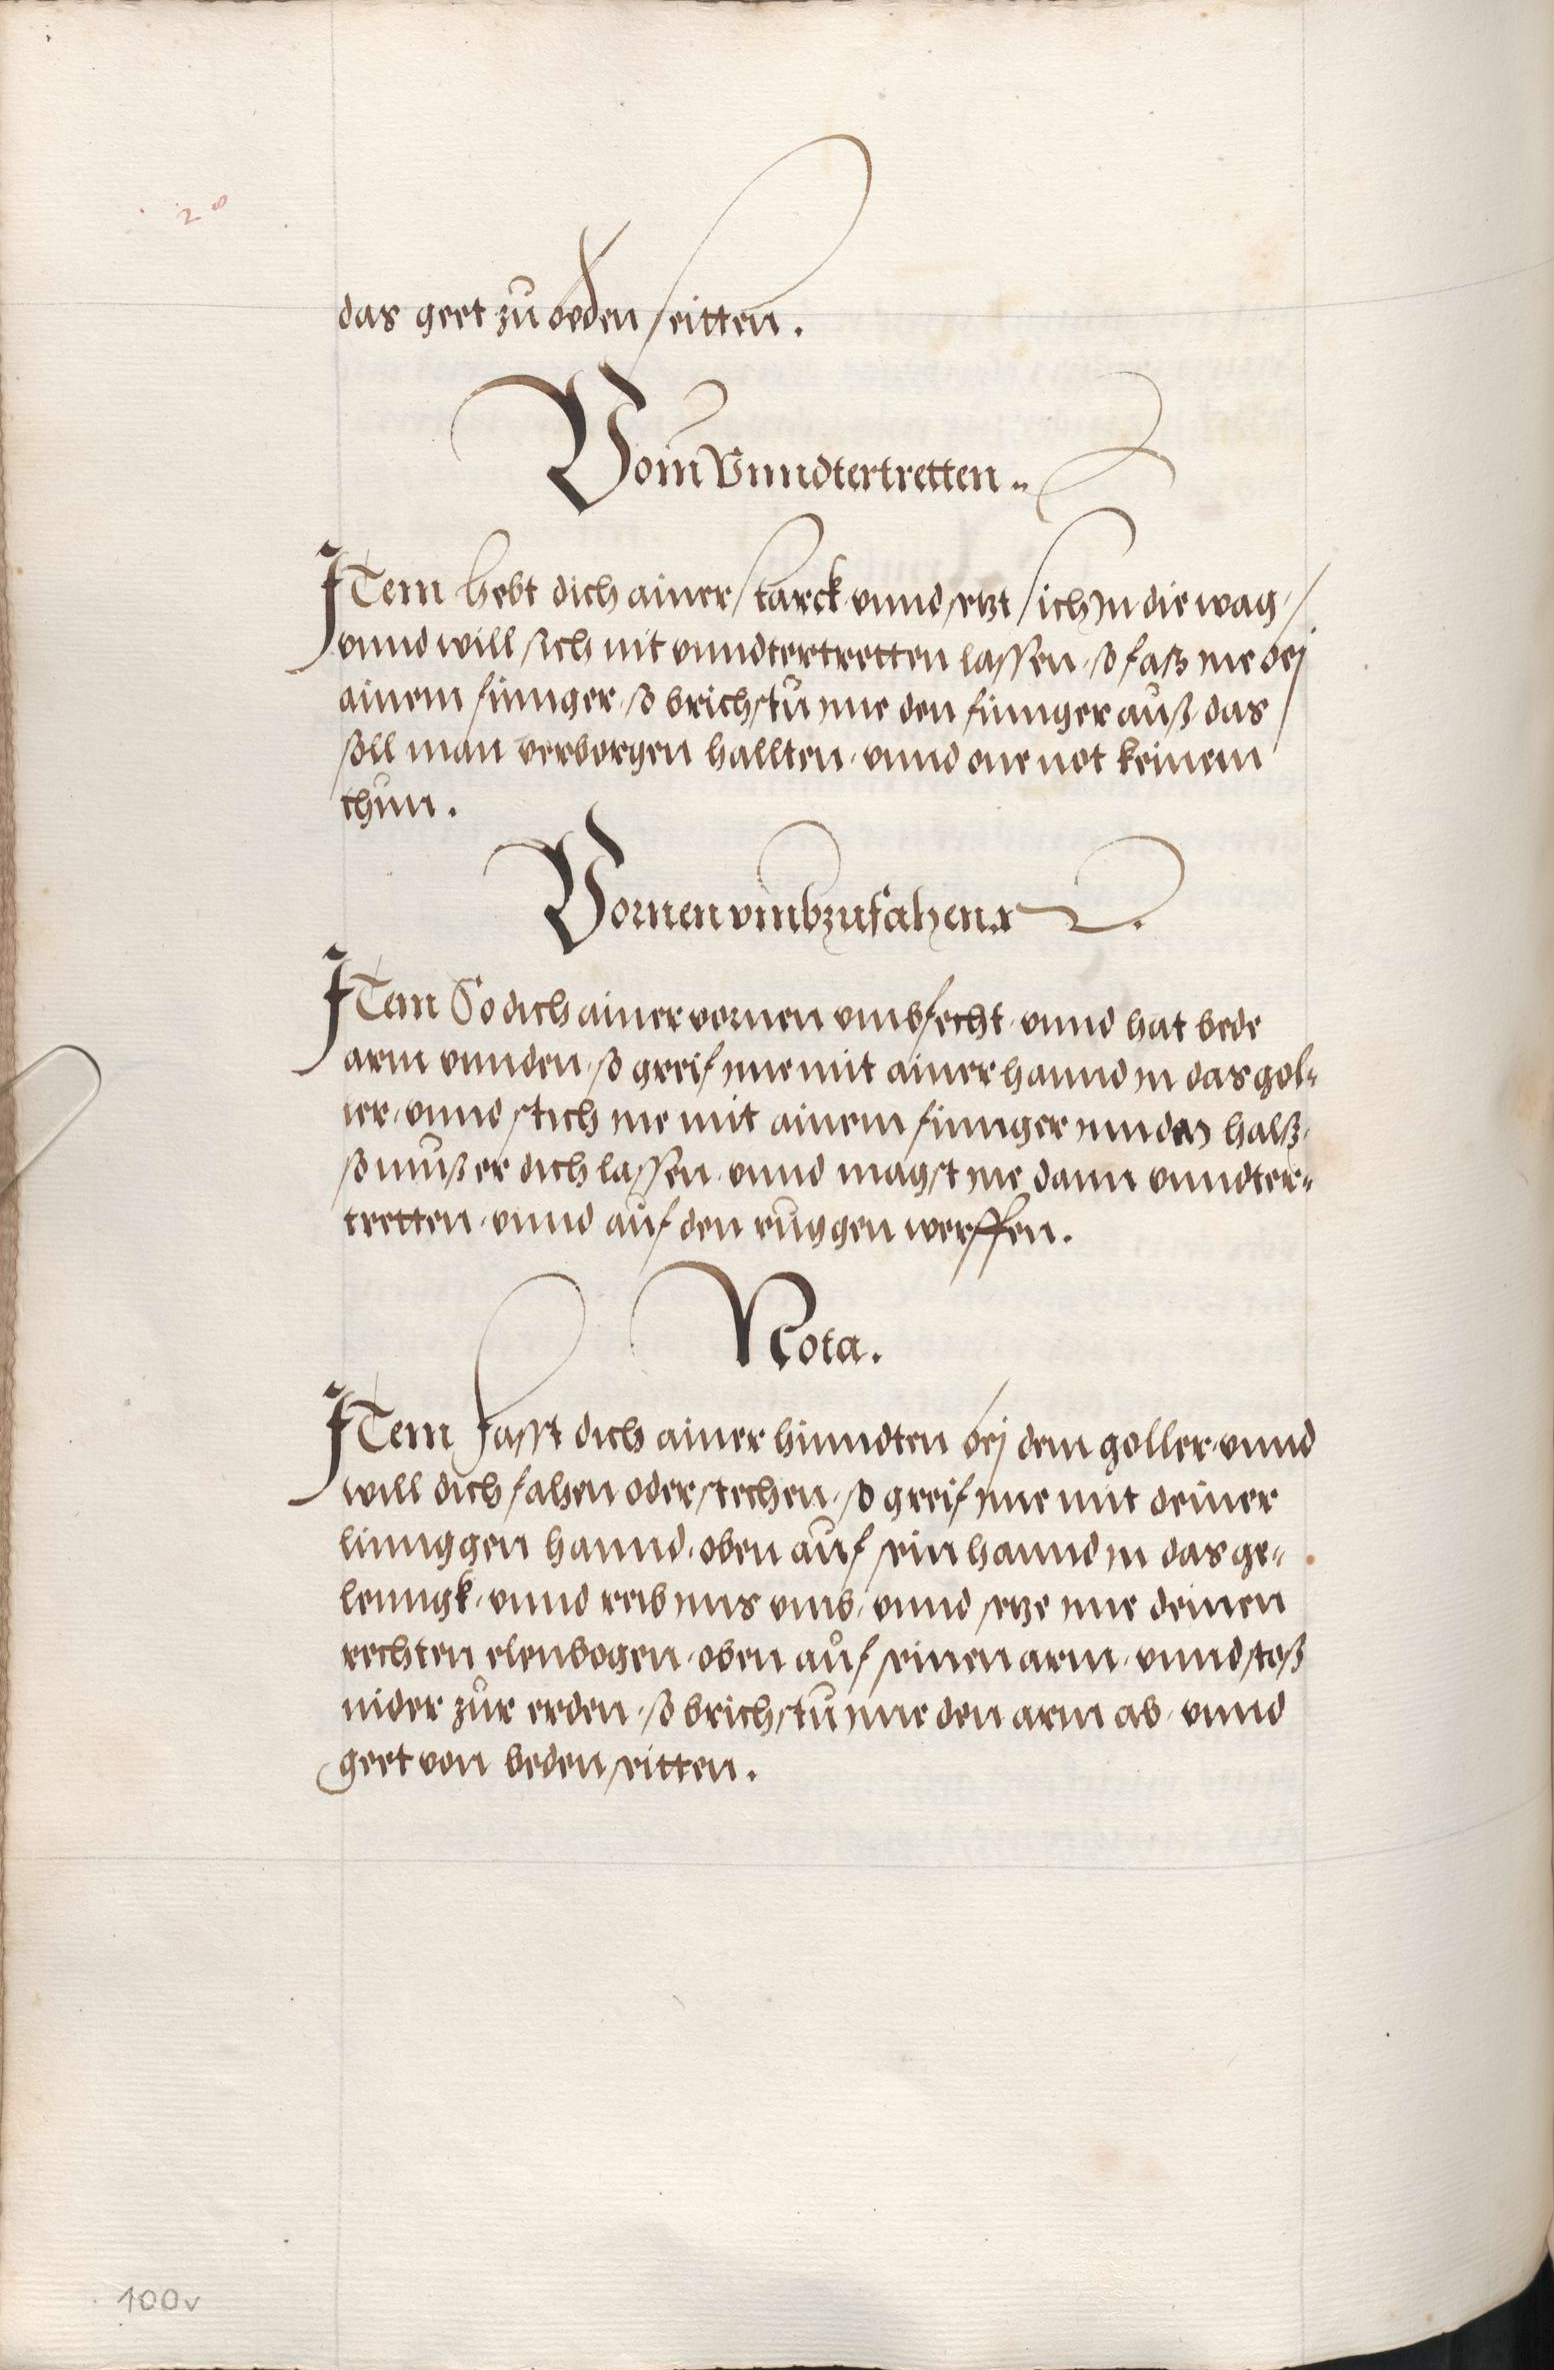 28
das geet zů beden seitten.
Vom Vnndtertretten.
Item hebt dich ainer starck vnnd setzt sich in die wag
vnnd will sich nit vnndtertretten lassen, so fass ine bej
ainem finnger, so brichstu ime den finnger auß, das
soll man verborgen hallten, vnnd one not keinem
thun.
Vornen vmbzufahen.
Item So dich ainer vornen vmbfecht, vnnd hat bede
arm vnnden, so greif ime mit ainer hannd in das gol-
ler, vnnd stich ine mit ainem finnger inn den halß,
so můß er dich lassen, vnnd magst ine dann vnndter-
tretten, vnnd auf den ruggen werffen.
Nota.
Item Fasst dich ainer hinndten bej dem goller, vnnd
will dich fahen oder stechen, so greif ime mit deiner
linnggen hannd, oben auf sein hannd in das ge-
lenngk, vnnd reib ims vmb, vnnd setze ime deinen
rechten elenbogen, oben aůf seinen arm, vnnd stoß
nider zůr erden, so brichstu ime den arm ab, vnnd
geet von beden seitten.
100v